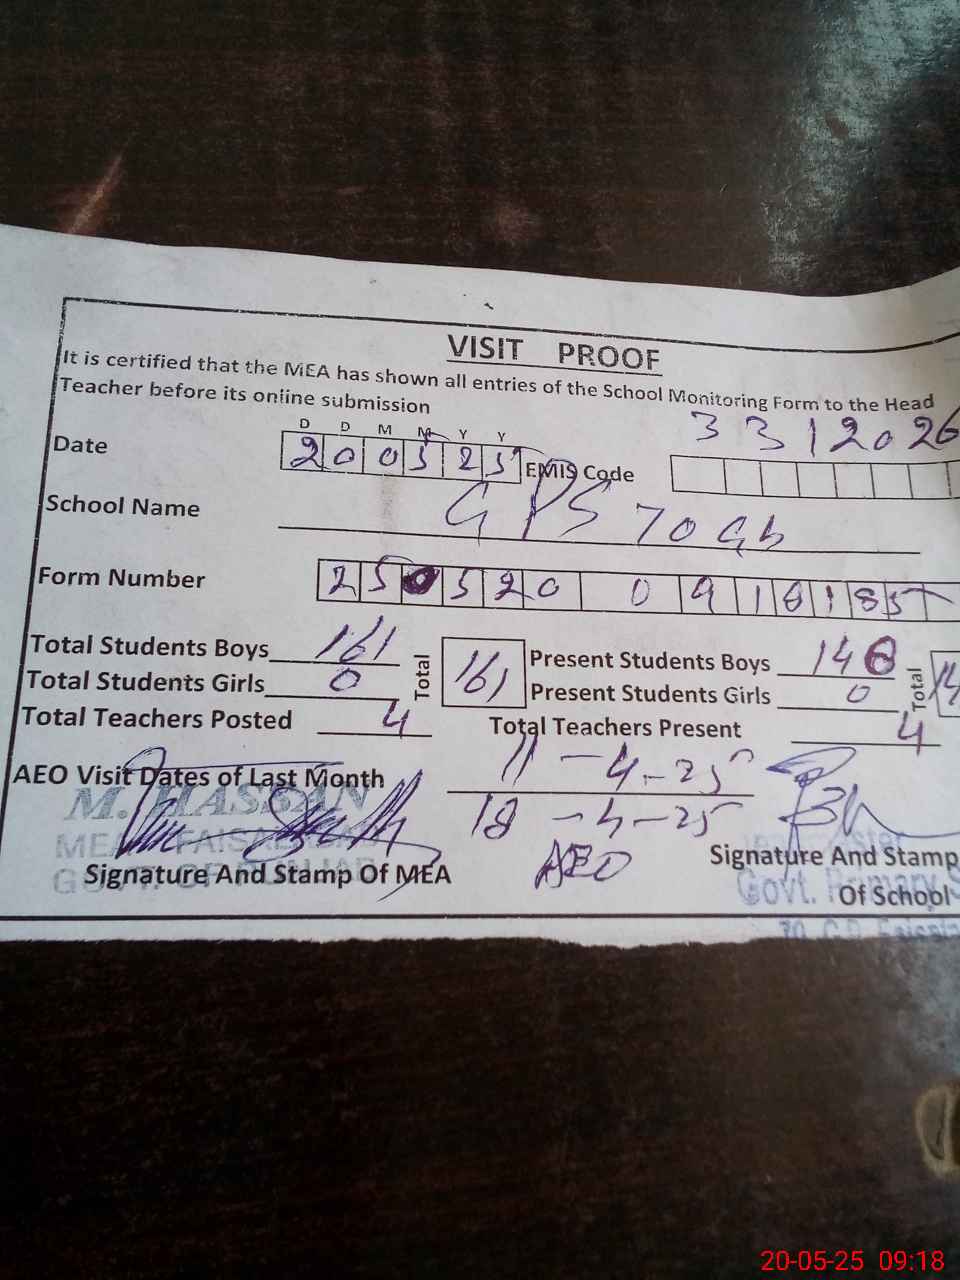 VISIT PROOF
It is certified that the MEA has shown all entries of the School Monitoring Form to the Head
Teacher before its online submission
D D M M Y Y
3 3 1 2 0 26
Date 2 0 0 5 2 5 EMIS Code
School Name GPS 70 Gb
Form Number 2 5 0 5 2 0 0 9 1 8 1 8 5
Total Students Boys 161 Total 161 Present Students Boys 148 Total 14
Total Students Girls 0 Present Students Girls 0
Total Teachers Posted 4 Total Teachers Present 4
AEO Visit Dates of Last Month 11-4-25
M. HASSAN 18-4-25
MEA FAISALABAD
GOVT. OF PUNJAB
Signature And Stamp Of MEA AEO Signature And Stamp
Govt. Primary S
Of School
70 G.B Faisala
20-05-25 09:18